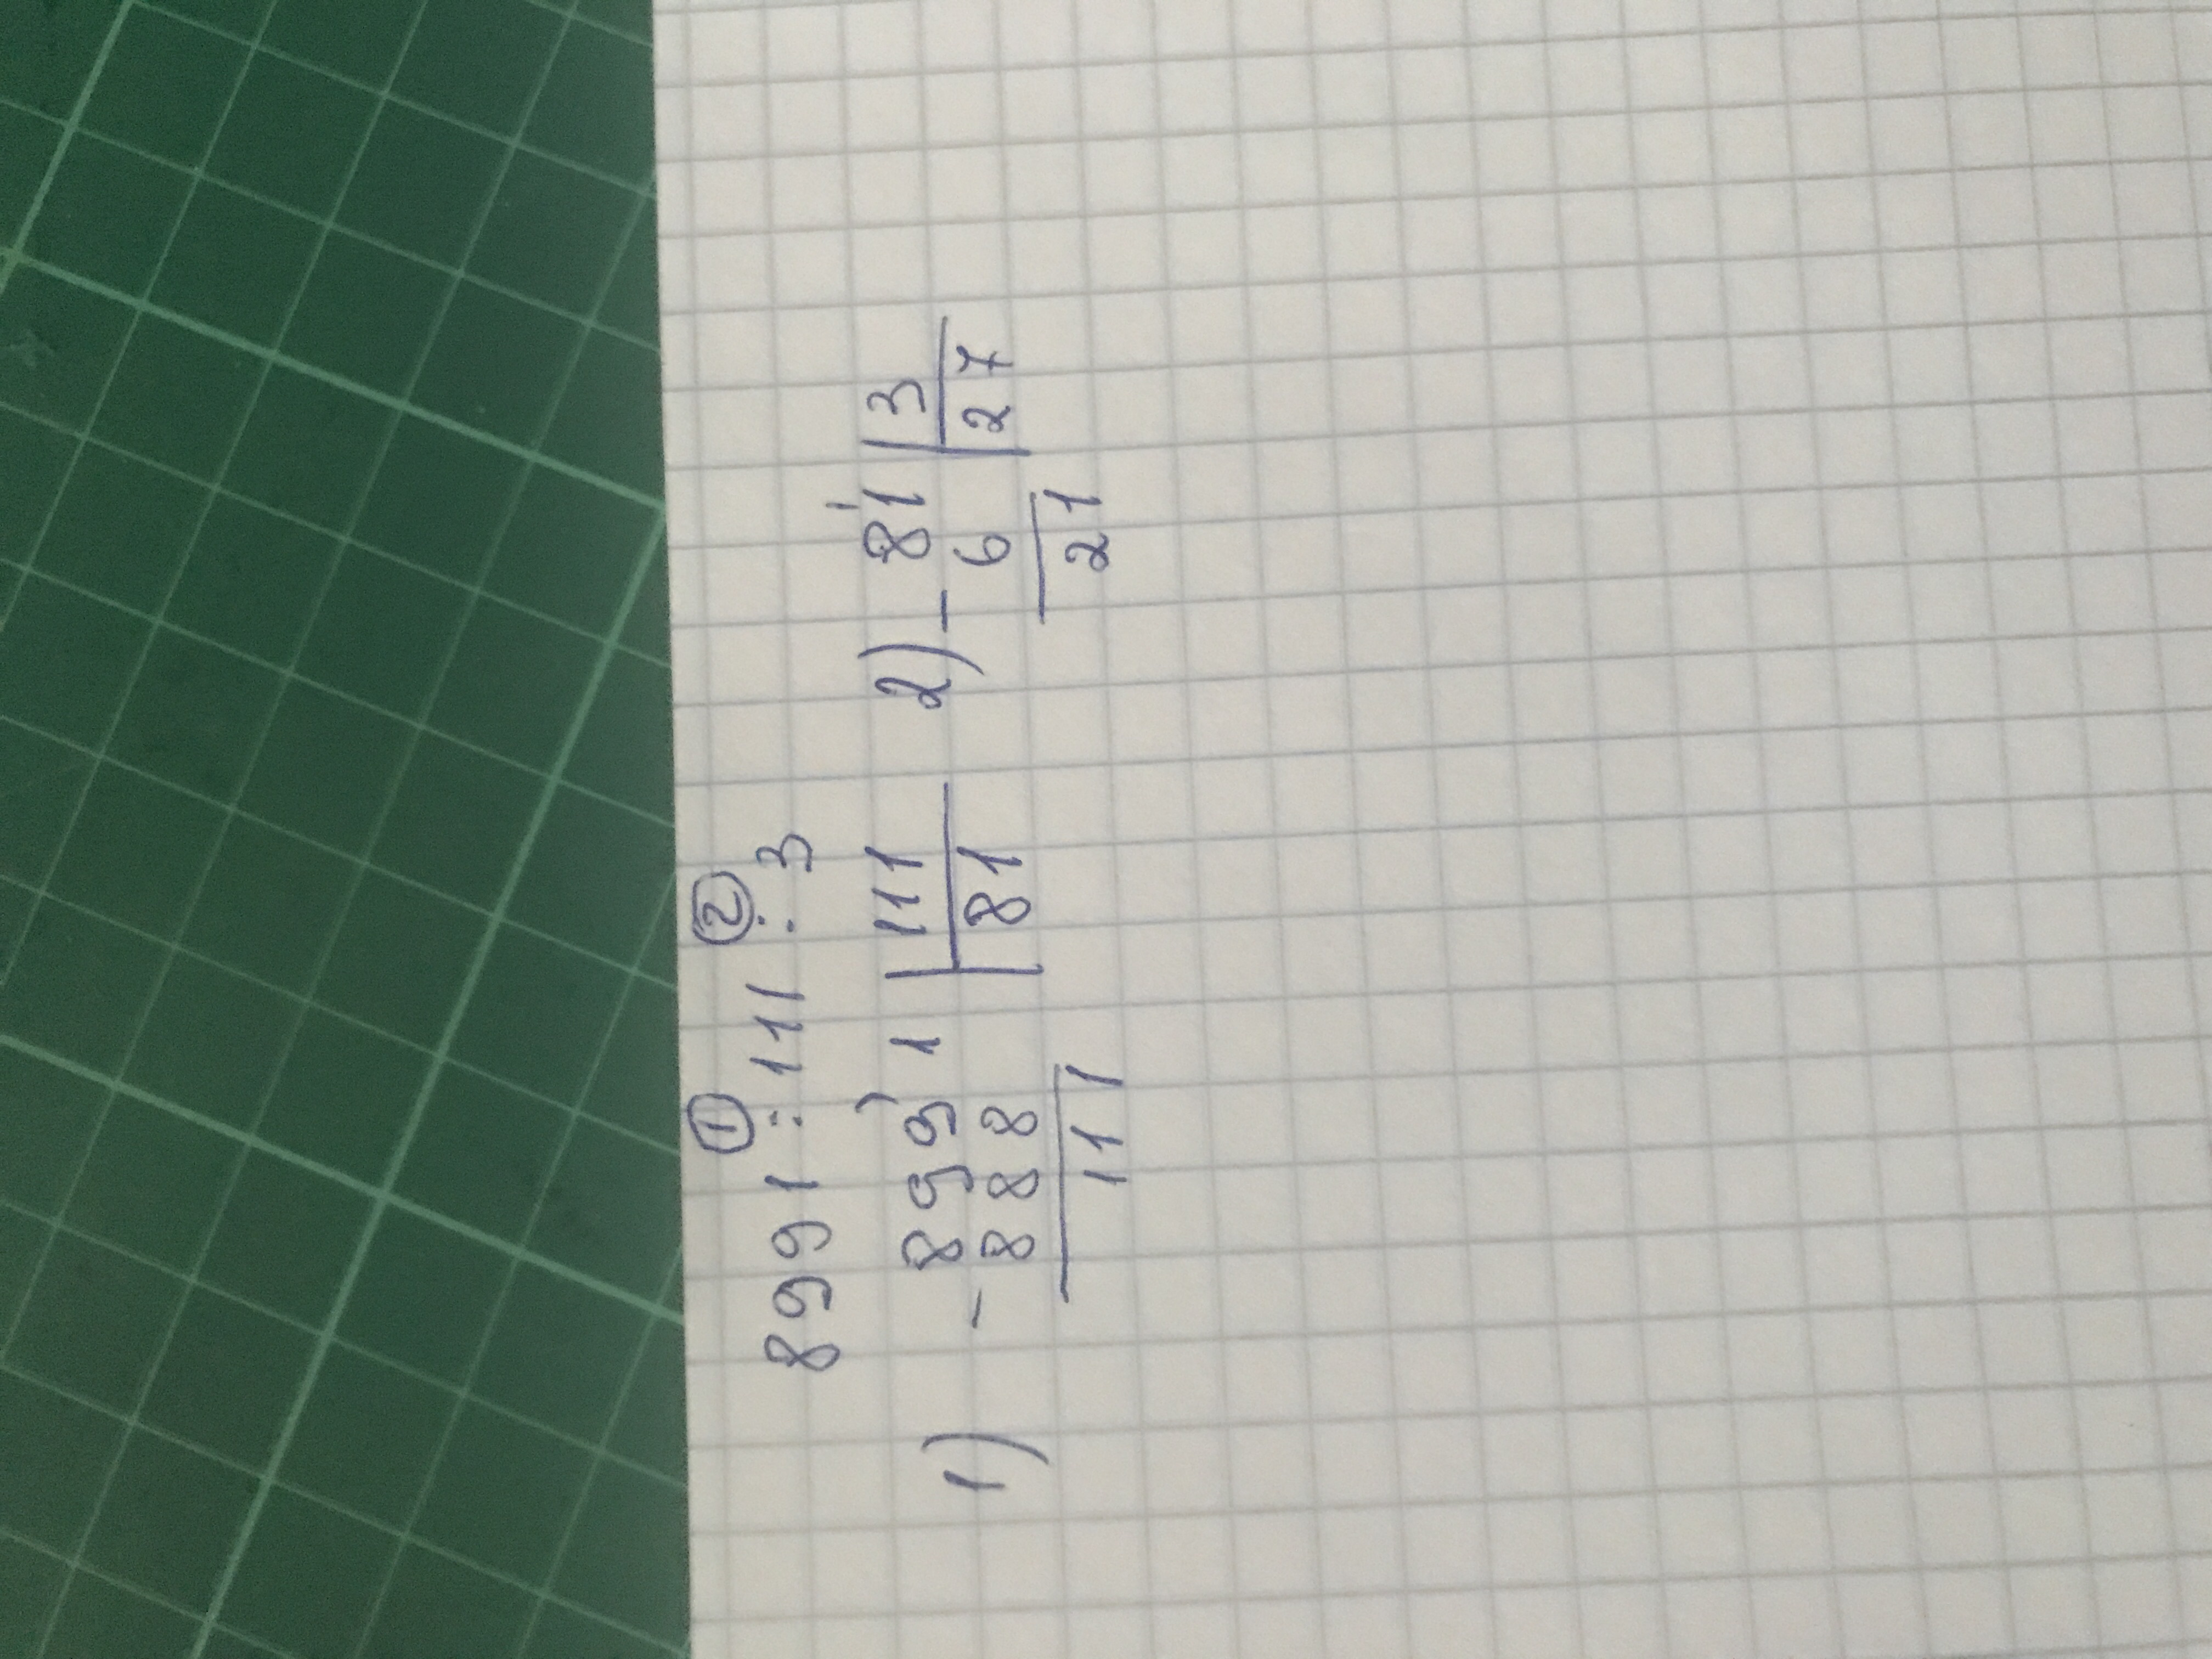 ① ②
8991 : 111 : 3
1) - 899'1 | 111 2) - 8'1 | 3
888 | 81 6 | 27
111 21